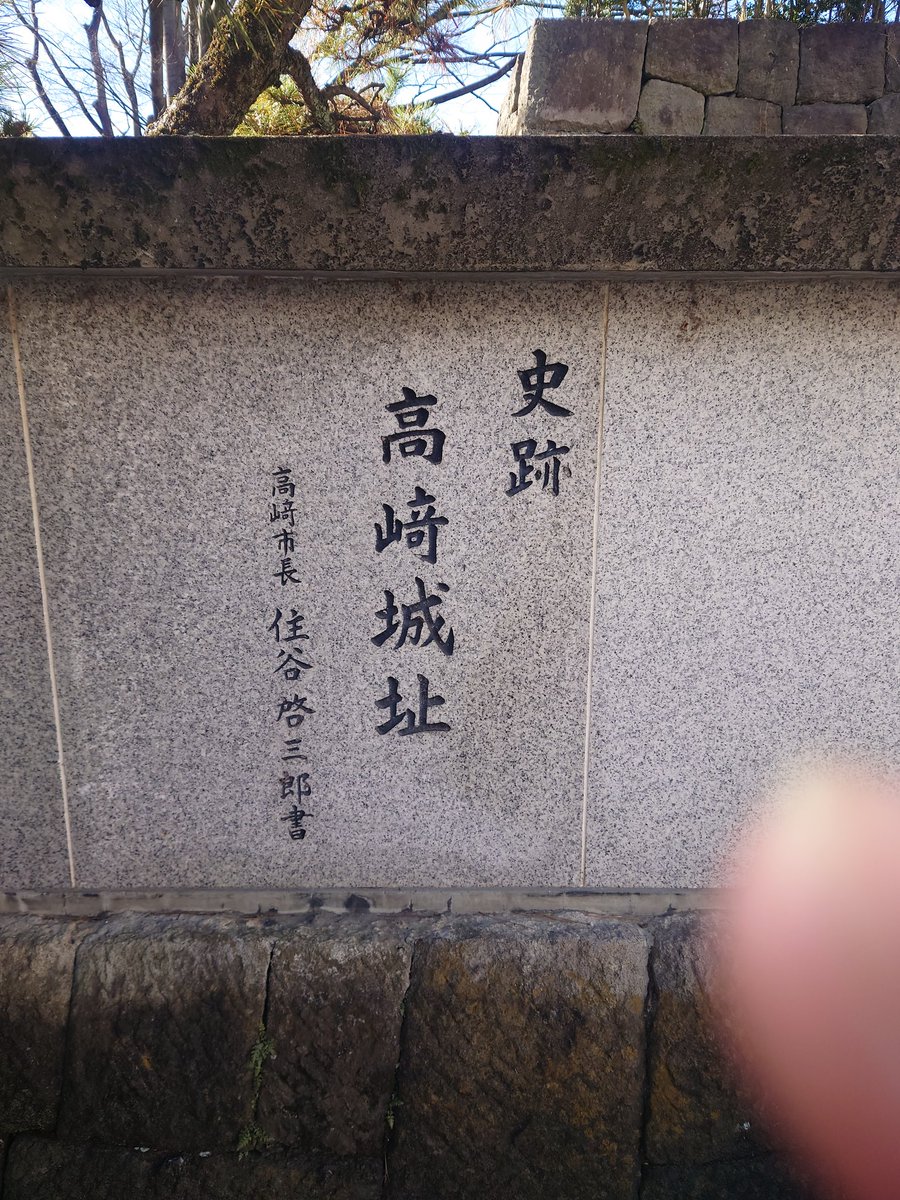 史跡
高﨑城址
高﨑市長 住谷啓三郎書